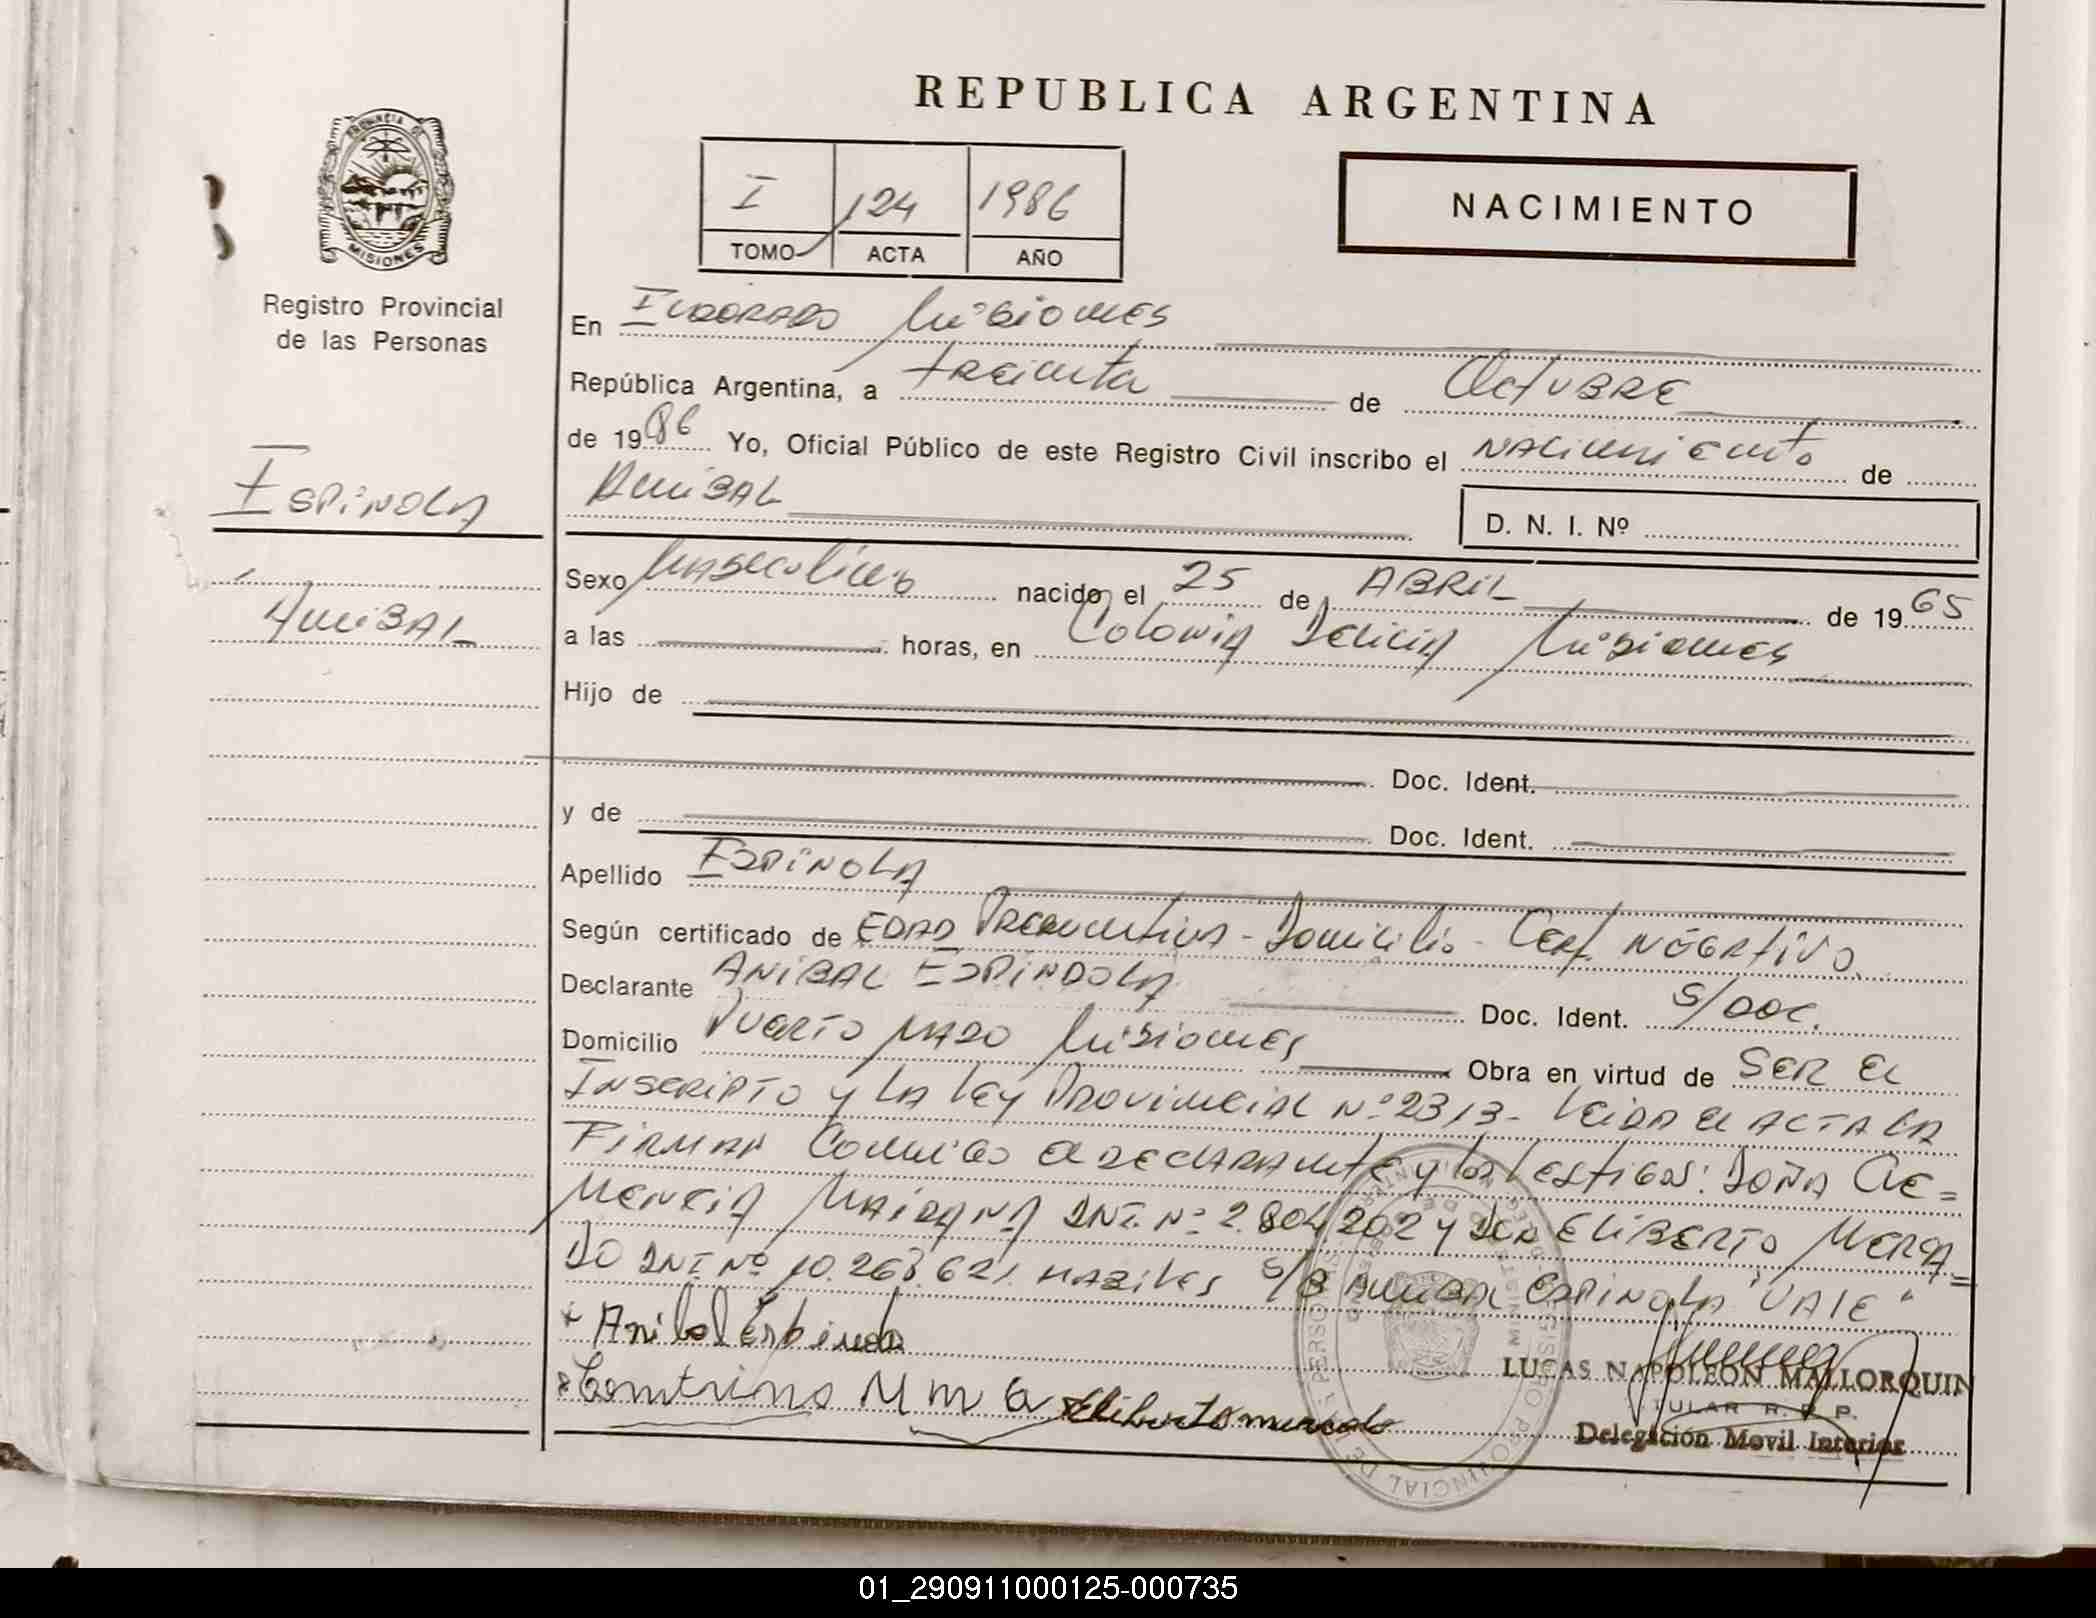 REPUBLICA ARGENTINA
PROVINCIA DE MISIONES
Registro Provincial
de las Personas
I 124 1986
TOMO ACTA AÑO
NACIMIENTO
En Eldorado Misiones
República Argentina, a treinta de Octubre
de 1986 Yo, Oficial Público de este Registro Civil inscribo el nacimiento de
Anibal
D. N. I. Nº
Espinola
Anibal
Sexo Masculino nacido el 25 de ABRIL de 1965
a las horas, en Colonia Delicia Misiones
Hijo de
Doc. Ident.
y de Doc. Ident.
Apellido ESPINOLA
Según certificado de EDAD Presuntiva - Domicilio - Cert. Negativo
Declarante ANIBAL ESPINDOLA Doc. Ident. S/DOC.
Domicilio Puerto Mado Misiones Obra en virtud de SER EL
INSCRIPTO y LA LEY PROVINCIAL Nº 2313 - Leida el ACTA LA
FIRMAN Conmigo el DECLARANTE y los testigos: DOÑA CLE=
MENCIA MAIDANA DNI. Nº 2.804.202 y DON ELIBERTO MERCA=
DO DNI Nº 10.268.621. HABILES S/B ANIBAL ESPINOLA "VALE"
Anibal Espinola
Eliberto mercado
LUCAS NAPOLEON MALLORQUIN
TITULAR R. P. P.
Delegación Movil Interior
REGISTRO PROVINCIAL DE LAS PERSONAS
01_290911000125-000735